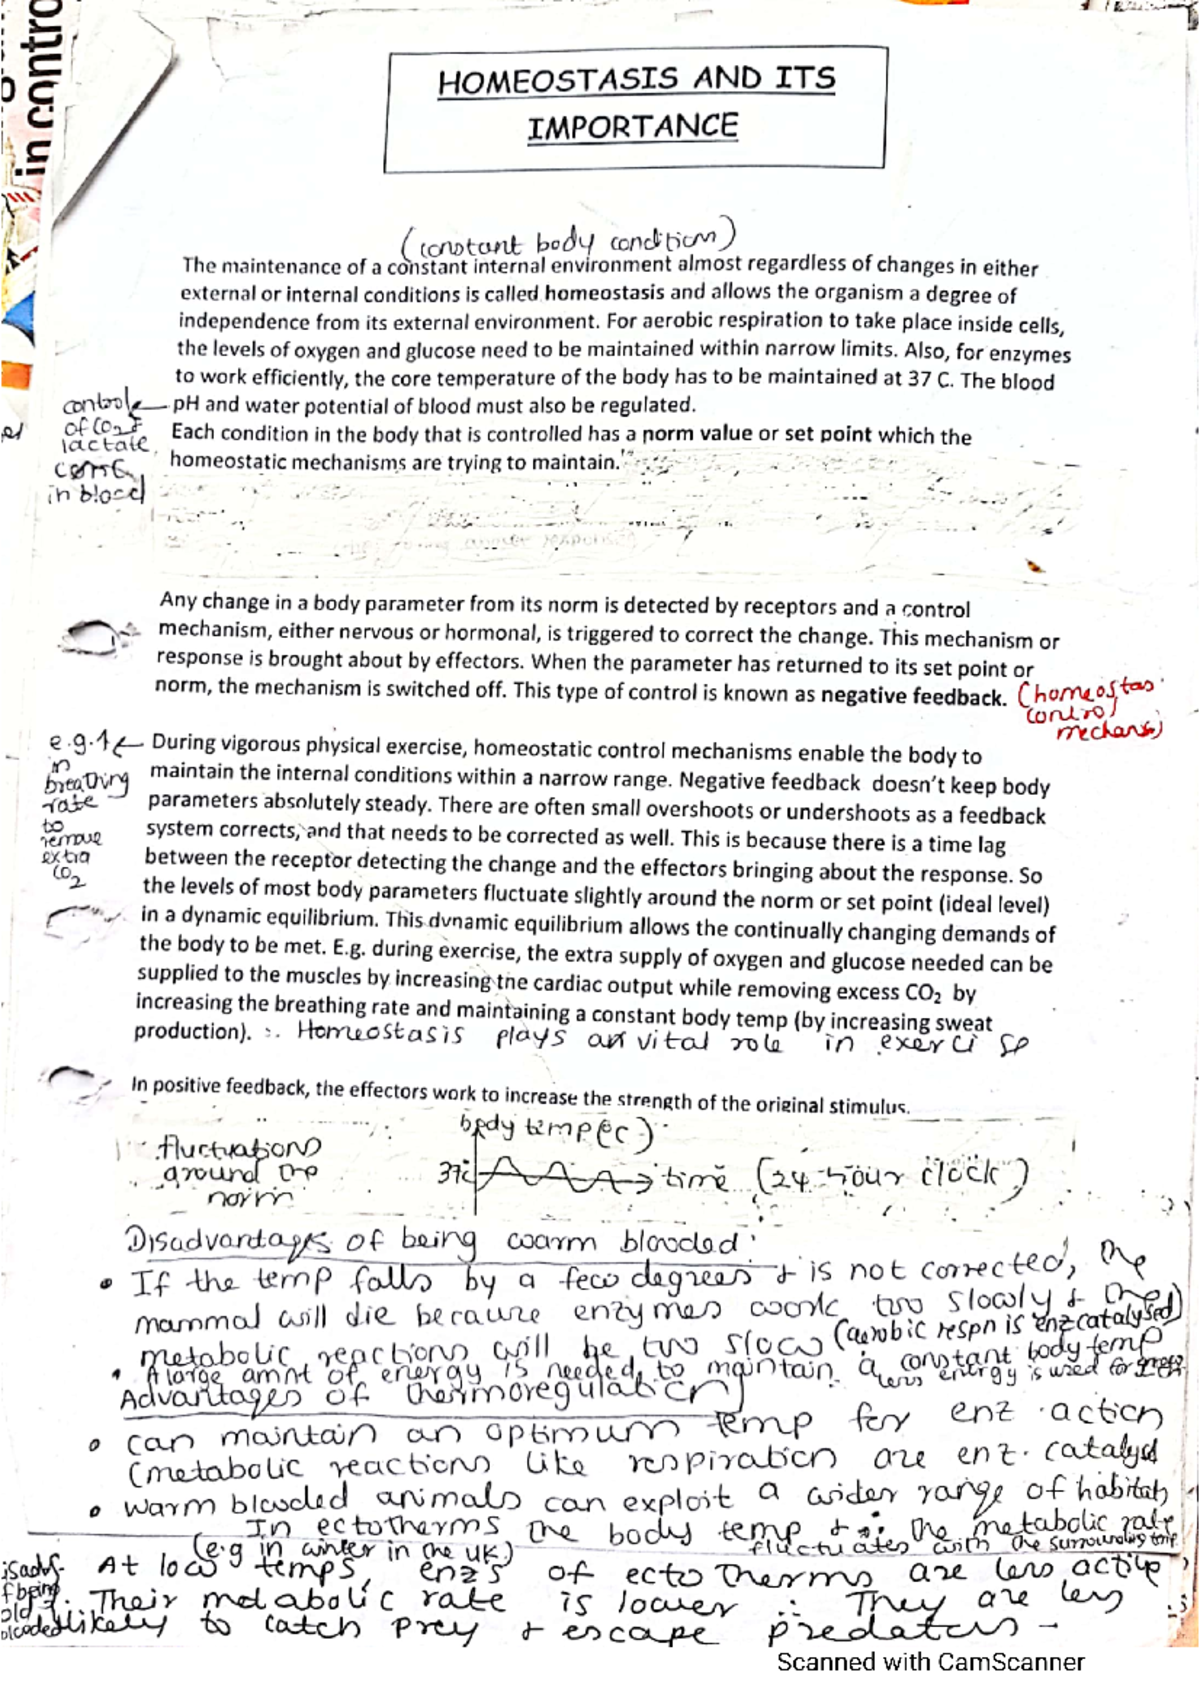 in contro
HOMEOSTASIS AND ITS
IMPORTANCE
(constant body condition)
The maintenance of a constant internal environment almost regardless of changes in either
external or internal conditions is called homeostasis and allows the organism a degree of
independence from its external environment. For aerobic respiration to take place inside cells,
the levels of oxygen and glucose need to be maintained within narrow limits. Also, for enzymes
to work efficiently, the core temperature of the body has to be maintained at 37 C. The blood
pH and water potential of blood must also be regulated.
controls
of CO2 &
lactate
conc
in blood
Each condition in the body that is controlled has a norm value or set point which the
homeostatic mechanisms are trying to maintain.
Any change in a body parameter from its norm is detected by receptors and a control
mechanism, either nervous or hormonal, is triggered to correct the change. This mechanism or
response is brought about by effectors. When the parameter has returned to its set point or
norm, the mechanism is switched off. This type of control is known as negative feedback.
(homeostas
control
mechans)
e.g. ↑
in
breathing
rate
to
remove
extra
CO2
During vigorous physical exercise, homeostatic control mechanisms enable the body to
maintain the internal conditions within a narrow range. Negative feedback doesn't keep body
parameters absolutely steady. There are often small overshoots or undershoots as a feedback
system corrects, and that needs to be corrected as well. This is because there is a time lag
between the receptor detecting the change and the effectors bringing about the response. So
the levels of most body parameters fluctuate slightly around the norm or set point (ideal level)
in a dynamic equilibrium. This dynamic equilibrium allows the continually changing demands of
the body to be met. E.g. during exercise, the extra supply of oxygen and glucose needed can be
supplied to the muscles by increasing the cardiac output while removing excess CO2 by
increasing the breathing rate and maintaining a constant body temp (by increasing sweat
production). ∴ Homeostasis plays a vital role in exercise
In positive feedback, the effectors work to increase the strength of the original stimulus.
body temp (°C)
fluctuations
around the
norm
37°C
time (24 hour clock)
Disadvantages of being warm blooded:
• If the temp falls by a few degrees & is not corrected, the
mammal will die because enzymes work too slowly & the
metabolic reactions will be too slow (aerobic respn is enz catalysed)
• A large amnt of energy is needed to maintain a constant body temp
less energy is used for
Advantages of thermoregulation
• can maintain an optimum temp for enz action
(metabolic reactions like respiration are enz. catalysd
• warm blooded animals can exploit a wider range of habitats
In ectotherms the body temp & ∴ the metabolic rate
fluctuates with the surrounding temp
(e.g in winter in the UK)
isadv.
f being
old
blooded
At low temps, enzs of ectotherms are less active
. Their metabolic rate is lower ∴ They are less
likely to catch prey & escape predators -
Scanned with CamScanner